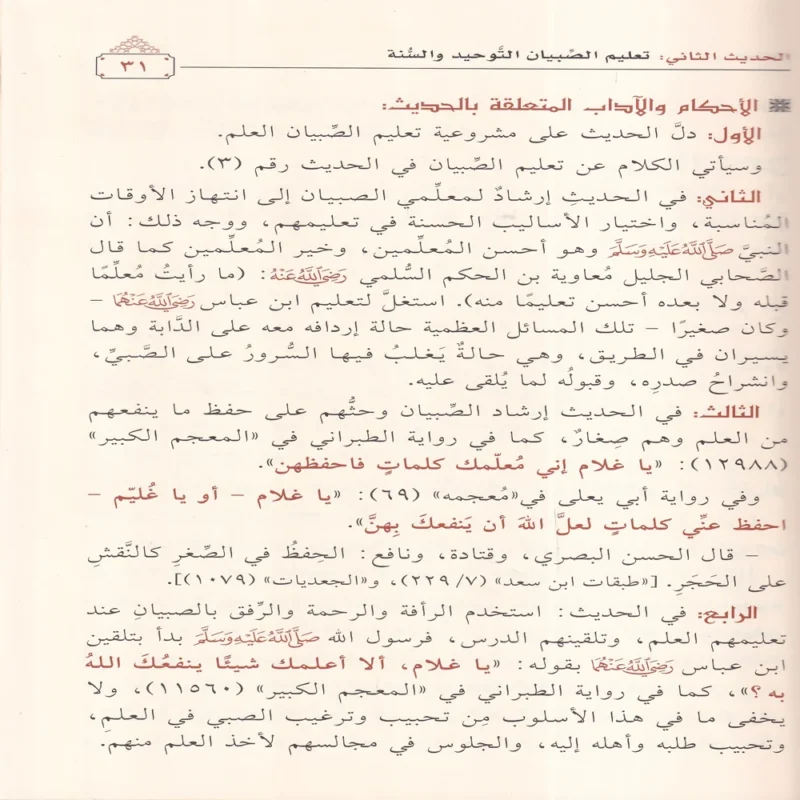 الحديث الثاني: تعليم الصِّبيان التَّوحيد والسُّنة
٣١
الأحكام والآداب المتعلقة بالحديث:
الأول: دلَّ الحديث على مشروعية تعليم الصِّبيان العلم.
وسيأتي الكلام عن تعليم الصِّبيان في الحديث رقم (٣).
الثاني: في الحديثِ إرشادٌ لمعلِّمي الصبيان إلى انتهاز الأوقات
المُناسبة، واختيار الأساليب الحسنة في تعليمهم، ووجه ذلك: أن
النبيَّ صَلَّى اللَّهُ عَلَيْهِ وَسَلَّمَ وهو أحسن المُعلِّمين، وخير المُعلِّمين كما قال
الصَّحابي الجليل مُعاوية بن الحكم السُّلمي رَضِيَ اللَّهُ عَنْهُ: (ما رأيتُ مُعلِّمًا
قبله ولا بعده أحسن تعليمًا منه). استغلَّ لتعليم ابن عباس رَضِيَ اللَّهُ عَنْهُمَا –
وكان صغيرًا – تلك المسائل العظمية حالة إردافه معه على الدَّابة وهما
يسيران في الطريق، وهي حالةٌ يَغلبُ فيها السُّرورُ على الصَّبيِّ،
وانشراحُ صدرِه، وقبولُه لما يُلقى عليه.
الثالث: في الحديث إرشاد الصِّبيان وحثُّهم على حفظ ما ينفعهم
من العلم وهم صِغارٌ، كما في رواية الطبراني في «المعجم الكبير»
(١٢٩٨٨): «يا غلام إني مُعلّمك كلماتٍ فاحفظهن».
وفي رواية أبي يعلى في«مُعجمه» (٦٩): «يا غلام – أو يا غُليّم –
احفظ عنِّي كلماتٍ لعلَّ اللهَ أن يَنفعكَ بِهنَّ».
– قال الحسن البصري، وقتادة، ونافع: الحِفظُ في الصِّغرِ كَالنَّقشِ
على الحَجَرِ. [«طبقات ابن سعد» (٢٢٩/٧)، و«الجعديات» (١٠٧٩)].
الرابع: في الحديث: استخدم الرأفة والرحمة والرِّفق بالصبيانِ عند
تعليمهم العلم، وتلقينهم الدرس، فرسول الله صَلَّى اللَّهُ عَلَيْهِ وَسَلَّمَ بدأ بتلقين
ابن عباس رَضِيَ اللَّهُ عَنْهُمَا بقوله: «يا غلام، ألا أعلمك شيئًا ينفعُكَ اللهُ
به؟»، كما في رواية الطبراني في «المعجم الكبير» (١١٥٦٠)، ولا
يخفى ما في هذا الأسلوب مِن تحبيب وترغيب الصبي في العلمِ،
وتحبيب طلبه وأهله إليه، والجلوس في مجالسهم لأخذ العلم منهم.